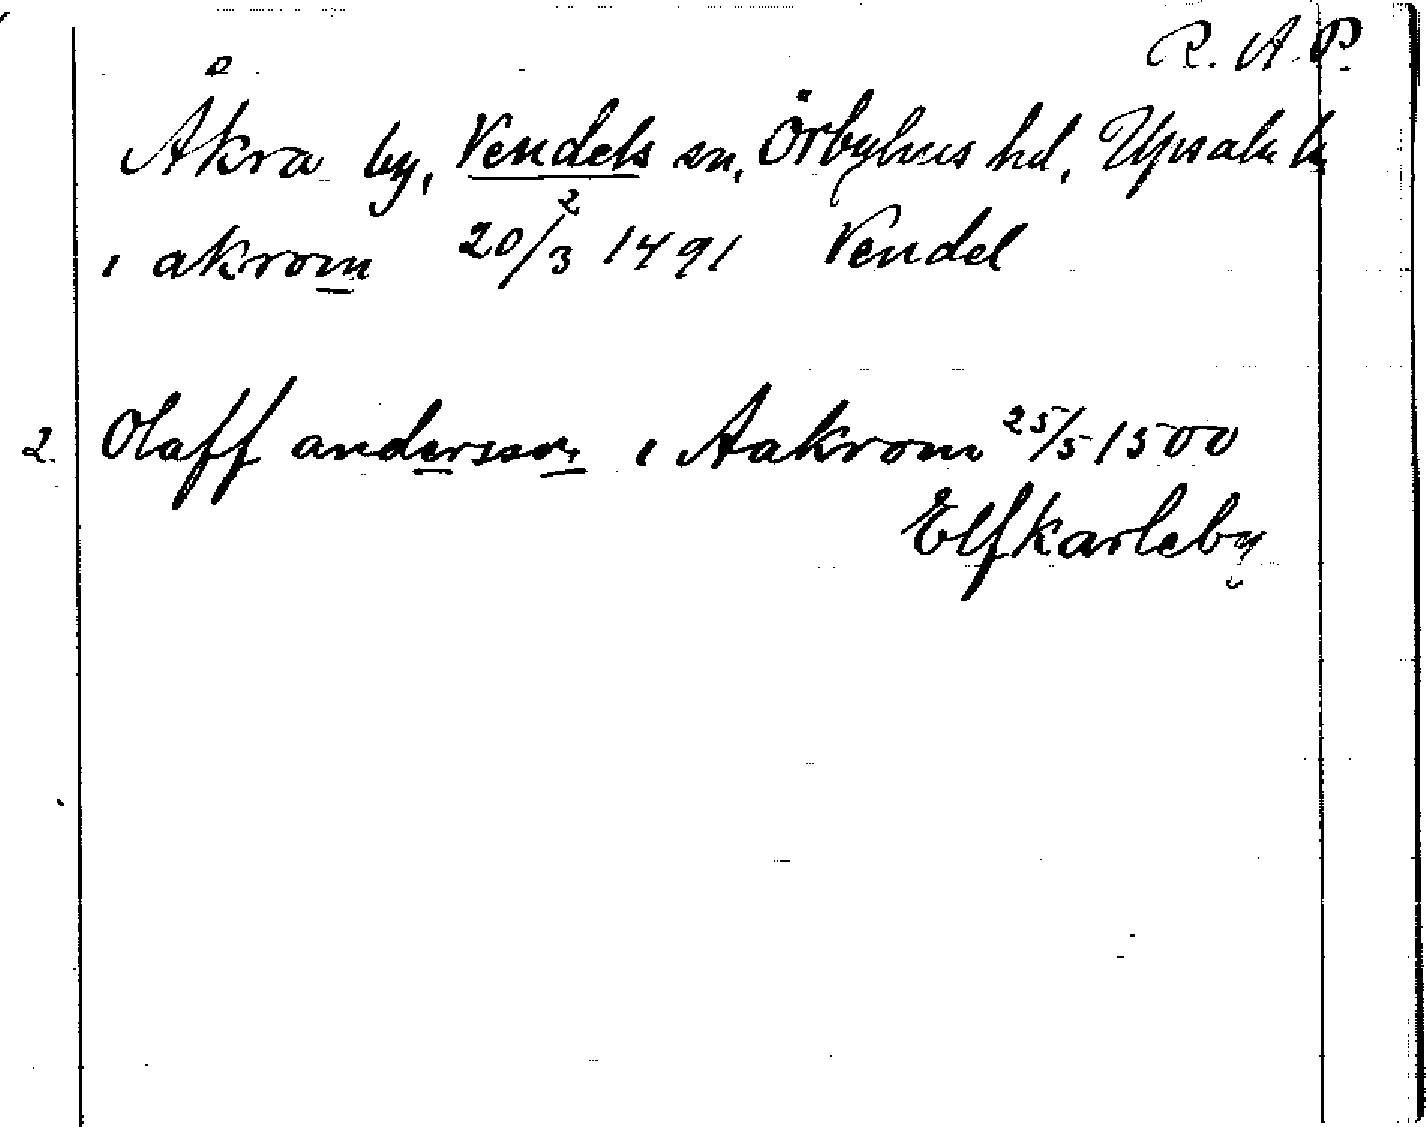 R. A. P.
Åkra by, Vendels sn, Örbyhus hd, Upsala ln
2
i akrom 20/3 1491 Vendel
2. Olaff andersson i Aakrom 25/5 1500
Elfkarleby